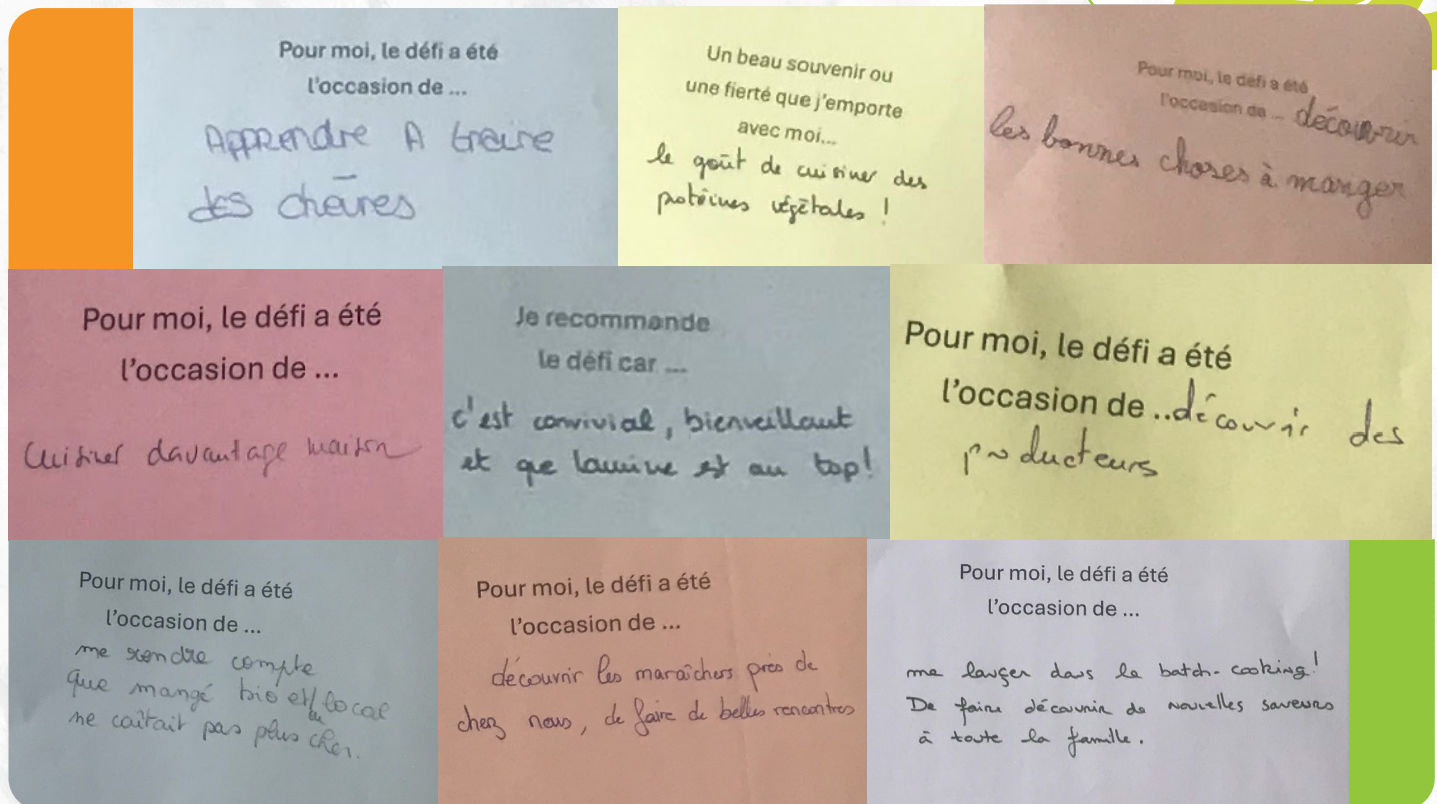 Pour moi, le défi a été
l'occasion de ...
Apprendre A traire
des chèvres
Un beau souvenir ou
une fierté que j'emporte
avec moi...
le goût de cuisiner des
protéines végétales !
Pour moi, le défi a été
l'occasion de ... découvrir
les bonnes choses à manger
Pour moi, le défi a été
l'occasion de ...
Cuisiner davantage maison
Je recommande
le défi car ...
c'est convivial, bienveillant
et que laurine est au top!
Pour moi, le défi a été
l'occasion de ...découvrir des
producteurs
Pour moi, le défi a été
l'occasion de ...
me rendre compte
que mangé bio et/ou local
ne coûtait pas plus cher.
Pour moi, le défi a été
l'occasion de ...
découvrir les maraîchers près de
chez nous, de faire de belles rencontres
Pour moi, le défi a été
l'occasion de ...
me lancer dans le batch-cooking!
De faire découvrir de nouvelles saveurs
à toute la famille.